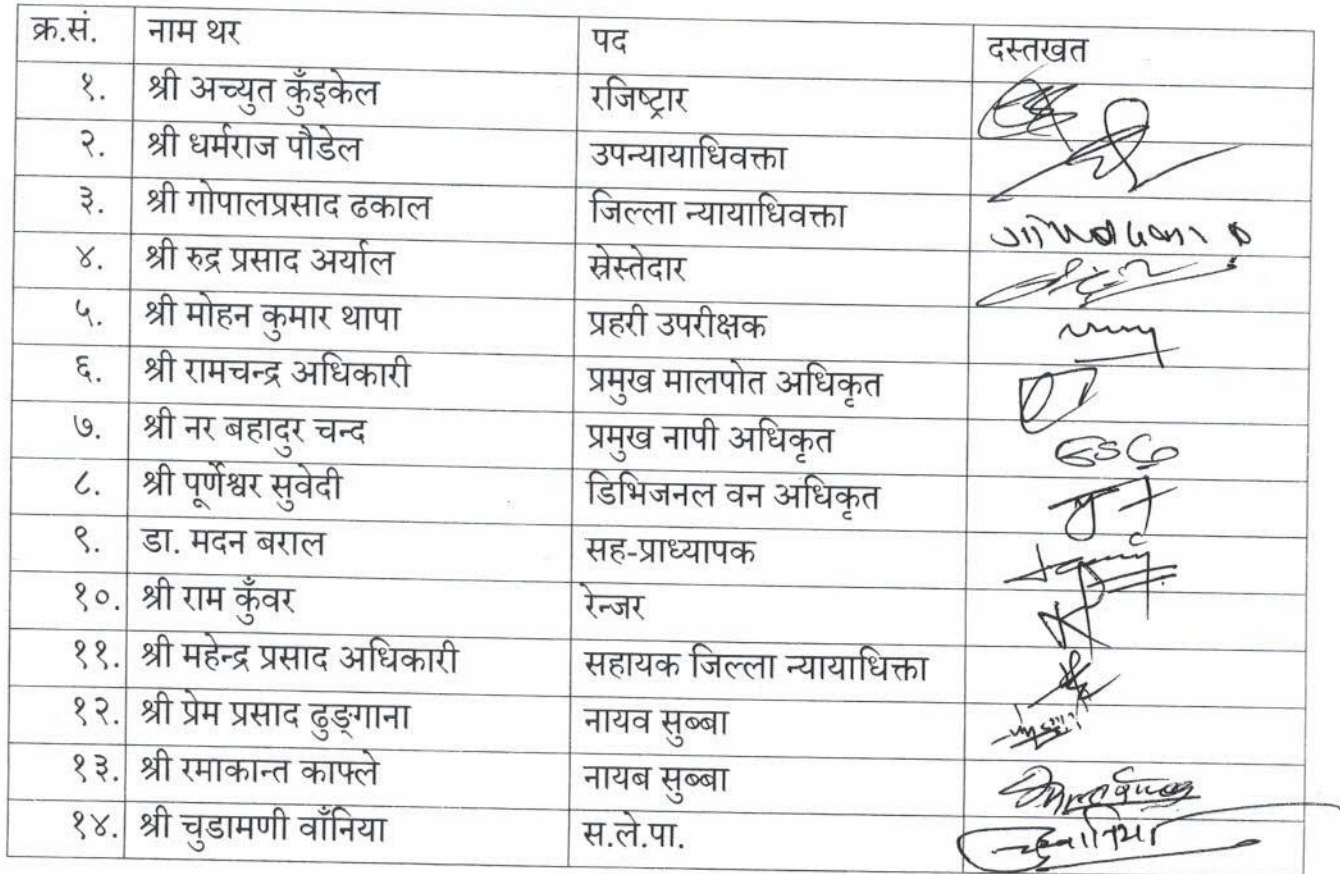 क्र.सं. नाम थर पद दस्तखत
१. श्री अच्युत कुँइकेल रजिष्ट्रार
२. श्री धर्मराज पौडेल उपन्यायाधिवक्ता
३. श्री गोपालप्रसाद ढकाल जिल्ला न्यायाधिवक्ता
४. श्री रुद्र प्रसाद अर्याल स्रेस्तेदार
५. श्री मोहन कुमार थापा प्रहरी उपरीक्षक
६. श्री रामचन्द्र अधिकारी प्रमुख मालपोत अधिकृत
७. श्री नर बहादुर चन्द प्रमुख नापी अधिकृत
८. श्री पूर्णेश्वर सुवेदी डिभिजनल वन अधिकृत
९. डा. मदन बराल सह-प्राध्यापक
१०. श्री राम कुँवर रेन्जर
११. श्री महेन्द्र प्रसाद अधिकारी सहायक जिल्ला न्यायाधिक्ता
१२. श्री प्रेम प्रसाद ढुङ्गाना नायव सुब्बा
१३. श्री रमाकान्त काफ्ले नायब सुब्बा
१४. श्री चुडामणी वाँनिया स.ले.पा.